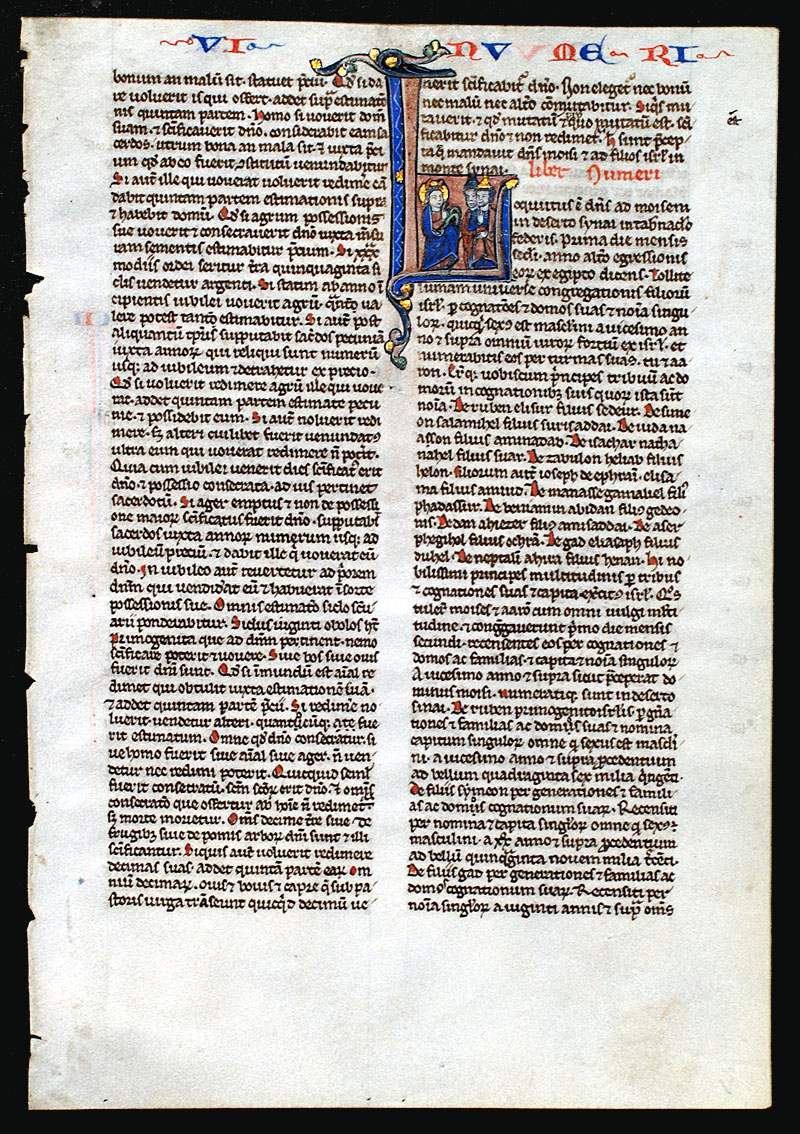 VI NVMERI
bonum an malū sit. statuet p̄ciū. Qd̄ si da
re voluerit is qui offert. addet sup̄ estimatōē
nis quintam partem. Homo si voverit dom̄
suam. & scīficaverit dn̄o. considerabit eam sa
cerdos. utrum bona an mala sit. & iuxta p̄ci
um qd̄ ab eo fuerit ɔstitutū venundabitur
Si aut̄ ille qui voverat voluerit redimere eā
dabit quintam partem estimationis supra
& habebit domū. Qd̄ si agrum possessionis
sue voverit & consecraverit dn̄o. iuxta m̄su
ram sementis estimabitur p̄cium. Si xxx
modiis ordei seritur t̄ra quinquaginta si
clis vendetur argenti. Si statim ab anno i
cipientis iubilei voverit agrū. q̄nto va
lere potest tanto estimabitur. Si aut̄ post
aliquantū tp̄ris supputabit sac̄dos pecuniā
iuxta annorꝝ qui reliqui sunt numerū
usq; ad iubileum & detrahetur ex precio.
Qd̄ si voluerit redimere agrū ille qui vove
rat. addet quintam partem estimate pecu
nie. & possidebit eum. Si aut̄ noluerit redi
mere. sꝫ alteri cuilibet fuerit venundatꝰ
ultra eum qui voverat redimere n̄ poc̄it.
Quia cum iubilei venerit dies scīficatꝰ erit
dn̄o. & possessio consecrata. ad ius pertinet
sacerdotū. Si ager emptus & non de possessi
one maiorꝝ scīficatus fuerit dn̄o. supputabit̄
sacerdos iuxta annorꝝ numerum usq; ad
iubileū p̄cium. & dabit ille q̄ voverat eū
dn̄o. In iubileo aut̄ revertetur ad p̄orem
dn̄m qui vendidat eū & habuerat ī sorte
possessionis sue. Omnis estimatō siclo sc̄tu
arii ponderabitur. Siclus viginti obolos ht̄
Primogenita que ad dn̄m pertinent. nemo
scīficare poterit & vovere. Sive bos sive ovis
fuerit dn̄i sunt. Qd̄ si īmundū est aīal re
dimet qui obtulit iuxta estimationē suā.
& addet quintam partē p̄cii. Si redime no
luerit. vendetur alteri. quantocūq; a te fue
rit estimatum. Omne qd̄ dn̄o consecrat̄ur. si
ve homo fuerit sive aīal sive ager. n̄ ven
detur nec redimi poterit. Quicquid semł
fuerit consecratū. scm̄ scōꝝ erit dn̄o. & omīs
consecratō que offertur ab hoīe n̄ redimet̄
sꝫ morte morietur. Om̄s decime t̄re sive de
frugibꝫ sive de pomis arborꝝ dn̄i sunt & illi
scīficantur. Si quis aut̄ voluerit redimere
decimas suas. addet quintā partē earꝝ. om
niū decimarꝝ. ovis & bovis & capre q̄ sub pa
storis virga trāseunt quicq̄d decimū ve
nerit scīficabit̄ dn̄o. Non eleget̄ nec bonū
nec malū nec alt̄o cōmutabitur. Si q̄s mu
taverit. & qd̄ mutatū & ꝓ quo mutatū est. sci
ficabitur dn̄o & non redimet̄. H̄ sunt p̄cep
ta q̄ mandavit dn̄s moisi & ad filios isrł in
monte synai.
liber Numeri
Locutusq; ē dn̄s ad moisen
in deserto synai in tabnac̄lo
federis. prima die mensis
sc̄di. anno alt̄o egressionis
eorꝝ ex egipto dicens. Tollite
sumam universe congregationis filiorū
isrł. p cognatōes & domos suas & noīa singu
lorꝝ. quicq̄d sexꝰ est masclini a vicesimo an
no & supra omniū virorꝝ fortiū ex isrł. et
numerabitis eos per turmas suas. tu & aa
ron. Er̄tq; vobiscum p̄ncipes tribuū ac do
morū in cognationibꝫ suis quorꝝ ista sūt
noīa. De ruben elisur filius sedeur. De sime
on salamihel filius surisaddai. De iuda na
asson filius aminadab. De isachar natha
nahel filius suar. De zabulon heliab filius
helon. Filiorum aut̄ ioseph de ephraī. elisa
ma filius amiud. De manasse gamaliel filiꝰ
phadassur. De beniamin abidan filiꝰ gedeo
nis. De dan ahiezer filiꝰ amisaddai. De aser
phegihel filius ochrā. De gad eliasaph filius
duhel. De neptalim ahira filius henan. Hi no
bilissimi principes multitudinis p tribus
& cognationes suas & capita ex̄citꝰ isrł. Qos
tuler̄t moises & aarō cum omni vulgi mlti
tudine. & congregaver̄t p̄mo die mensis
secundi. recensentes eos per cognationes &
domos ac familias. & capita & noīa singulorꝝ
A vicesimo anno & supra sicut p̄ceperat do
minus moisi. numeratiq; sunt in deserto
sinai. De ruben primogenito isrłis p gn̄a
tiones & familias ac domꝰ suas & nomina
capitum singulorꝝ omne q̄ sexus est mascli
ni. a vicesimo anno & supra procedentium
ad bellum quadraginta sex milia q̄ngēti.
De filiis symeon per generationes & famili
as ac domos cognationum suarꝝ. Recensiti
per nomina & capita singlorꝝ omne q̄ sexꝰ ē
masculini. a xx anno & supra procedentium
ad bellū quinq̄ginta novem milia tc̄enti.
De filiis gad per generationes & familias ac
domos cognationum suarꝝ. Recensiti per
noīa singlorꝝ a viginti annis & supra om̄s
et